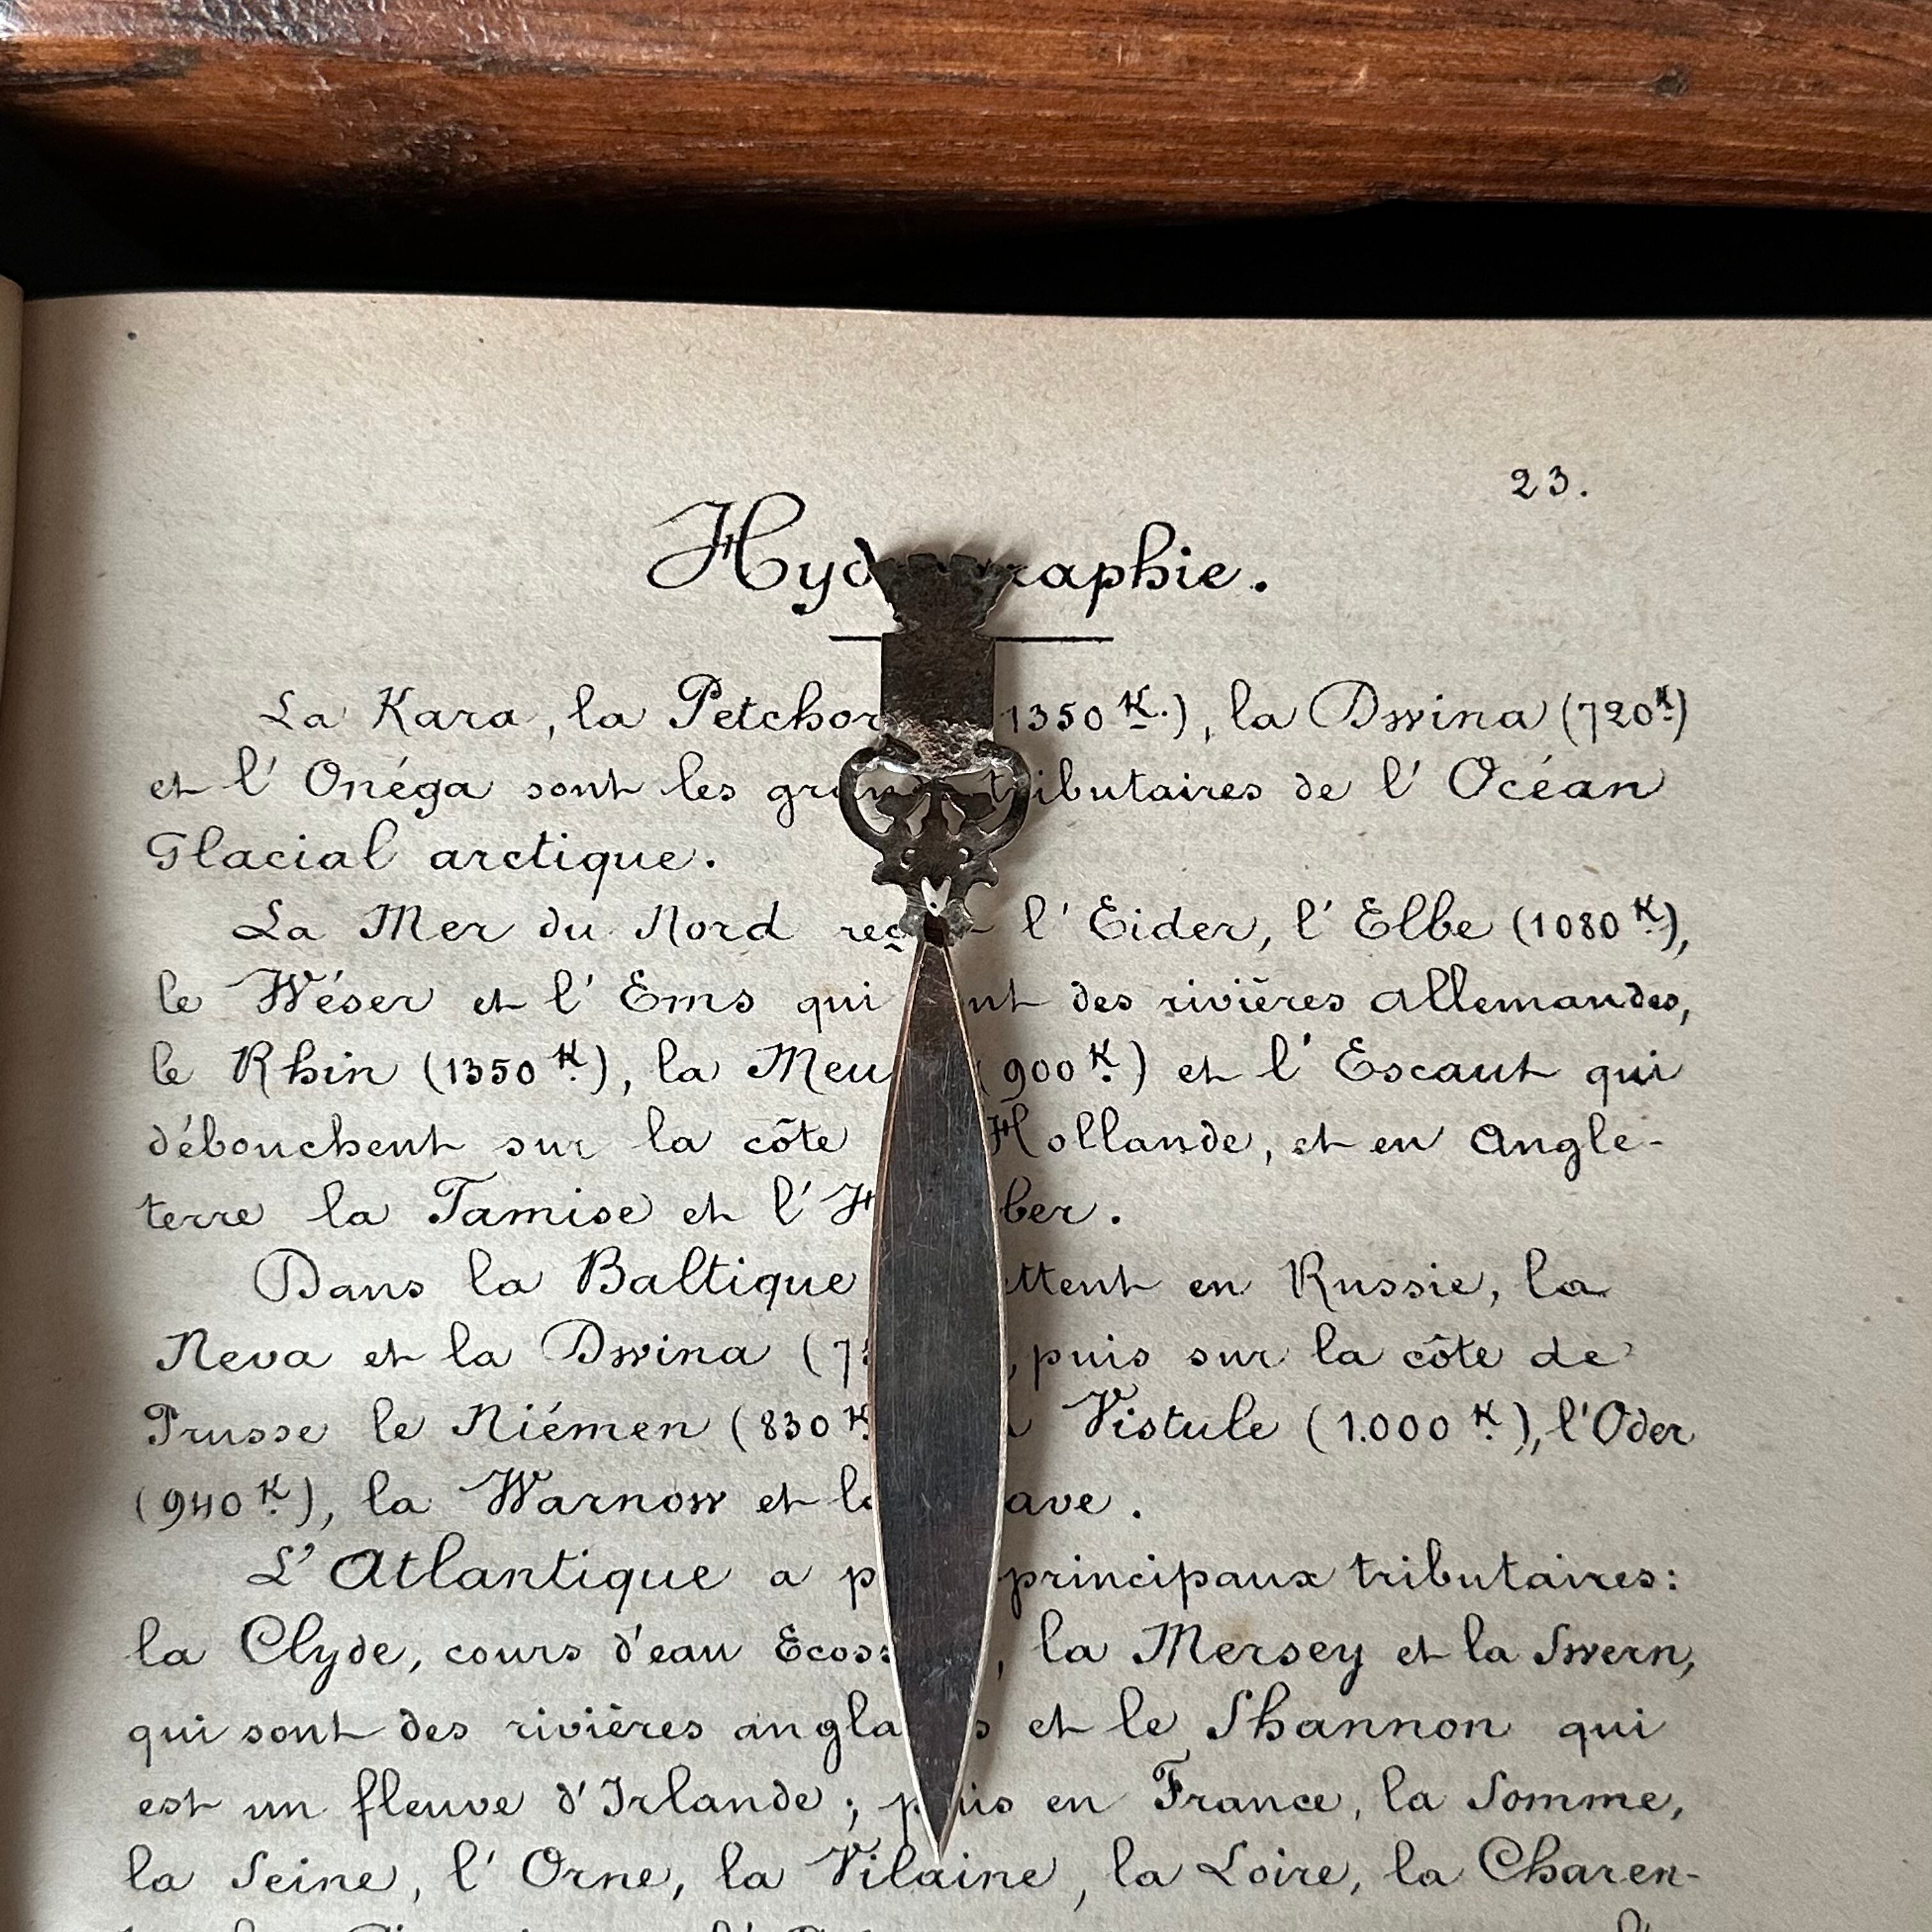 23.
Hydrographie.
La Kara, la Petchora (1350 K.), la Dwina (720 K.)
et l'Onéga sont les grands tributaires de l'Océan
Glacial arctique.
La Mer du Nord reçoit l'Eider, l'Elbe (1080 K.),
le Wéser et l'Ems qui sont des rivières allemandes,
le Rhin (1350 K.), la Meuse (900 K.) et l'Escaut qui
débouchent sur la côte Hollande, et en Angle-
terre la Tamise et l'Humber.
Dans la Baltique en Russie, la
Neva et la Dwina puis sur la côte de
Prusse le Niémen (830 K. Vistule (1.000 K.), l'Oder
(940 K.), la Warnow et la
L'Atlantique a principaux tributaires:
la Clyde, cours d'eau la Mersey et la Swern,
qui sont des rivières anglaises et le Shannon qui
est un fleuve d'Irlande; puis en France, la Somme,
la Seine, l'Orne, la Vilaine, la Loire, la Charen-